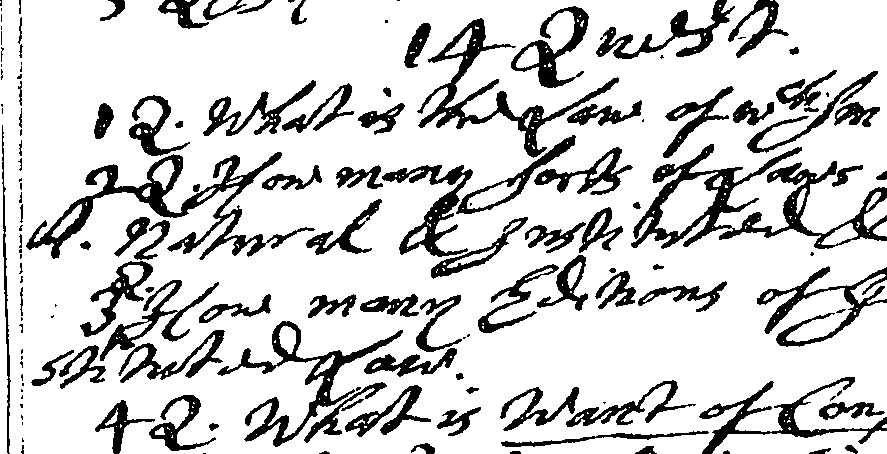 14 Quest.
1 Q. What is the Law of wch
2 Q. How many sorts of Laws
A. Natural & Instituted &
3 Q. How many Editions of
stituted Law.
4 Q. What is Want of Con